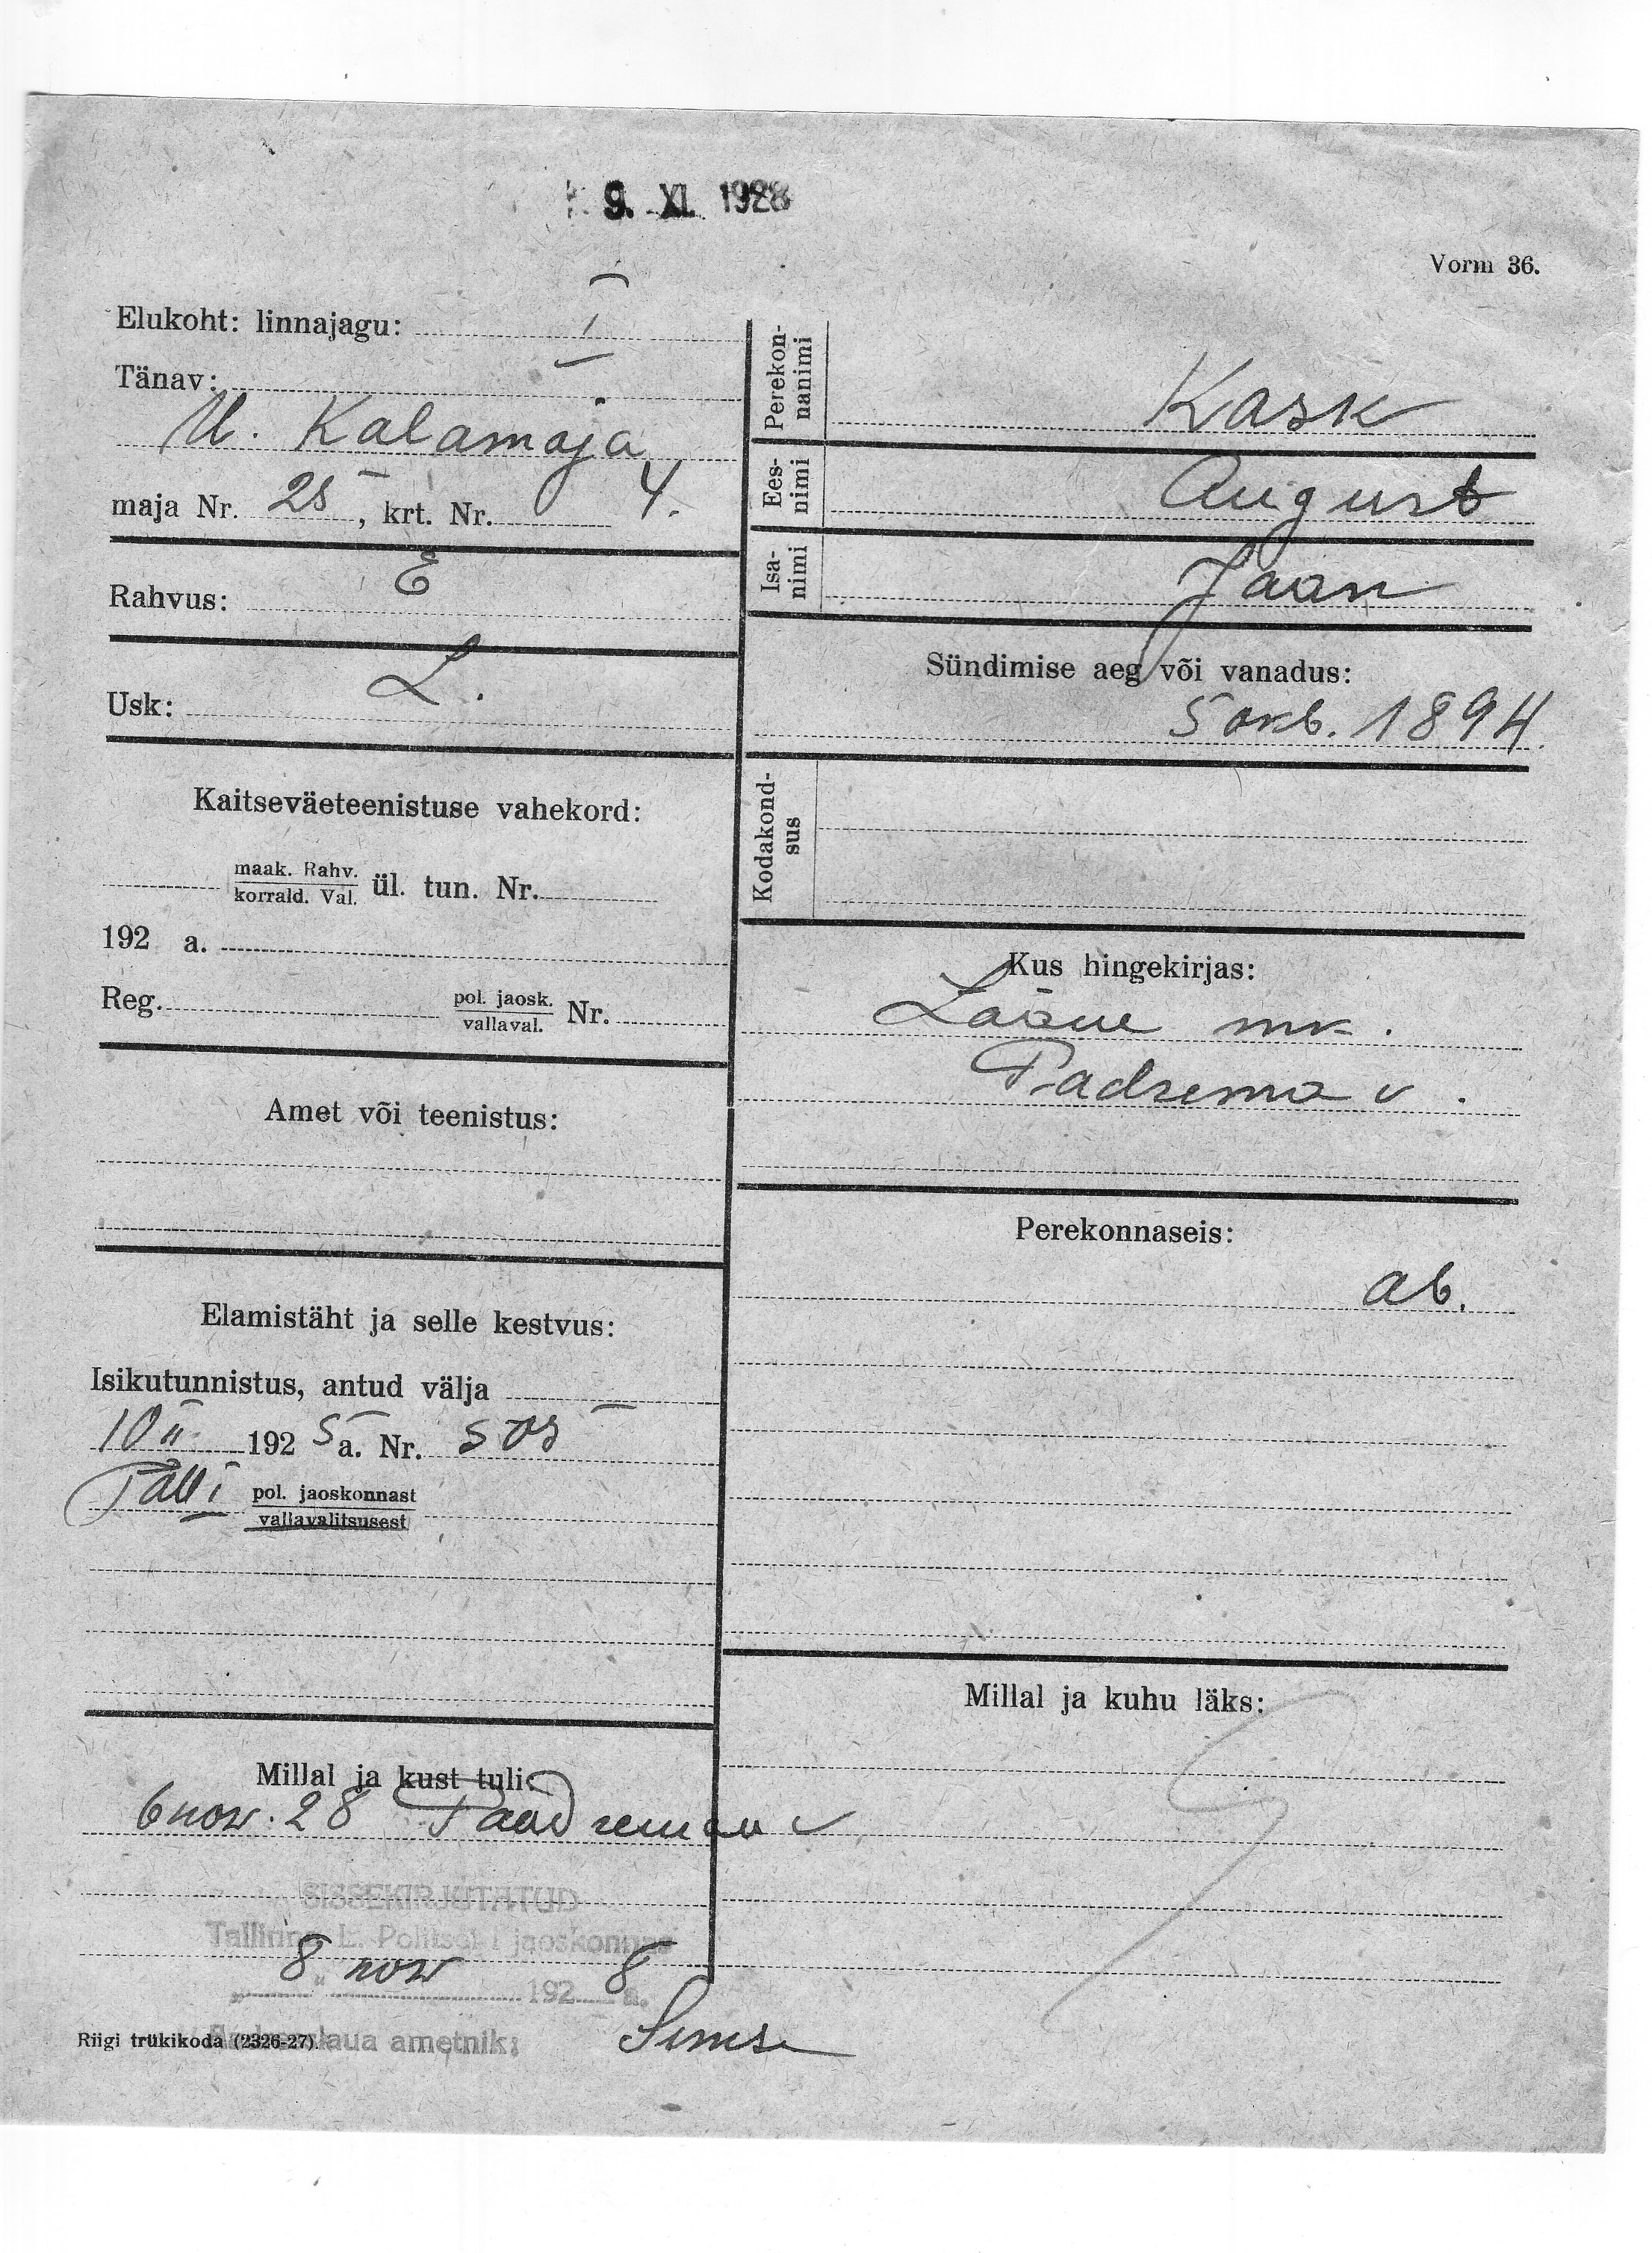 9. XI. 1928
Vorm 36.
Elukoht: linnajagu: I
Tänav:
U. Kalamaja
maja Nr. 25, krt. Nr. 4.
Rahvus: E
Usk: L.
Kaitseväeteenistuse vahekord:
maak. Rahv.
korrald. Val. ül. tun. Nr.
192 a.
Reg. pol. jaosk.
vallaval. Nr.
Amet või teenistus:
Elamistäht ja selle kestvus:
Isikutunnistus, antud välja
10 II 192 5 a. Nr. 505
Tall I pol. jaoskonnast
vallavalitsusest
Millal ja kust tuli:
6 nov. 28 Paadremaa v
SISSEKIRJUTATUD
Tallinna L. Politsei I jaoskonnas
8 nov 192 8 a.
laua ametnik:
Riigi trükikoda (2326-27).
Perekonnanimi
Kask
Eesnimi
August
Isanimi
Jaan
Sündimise aeg või vanadus:
5 okt. 1894.
Kodakondsus
Kus hingekirjas:
Lääne mk.
Padrema v.
Perekonnaseis:
ab.
Millal ja kuhu läks: